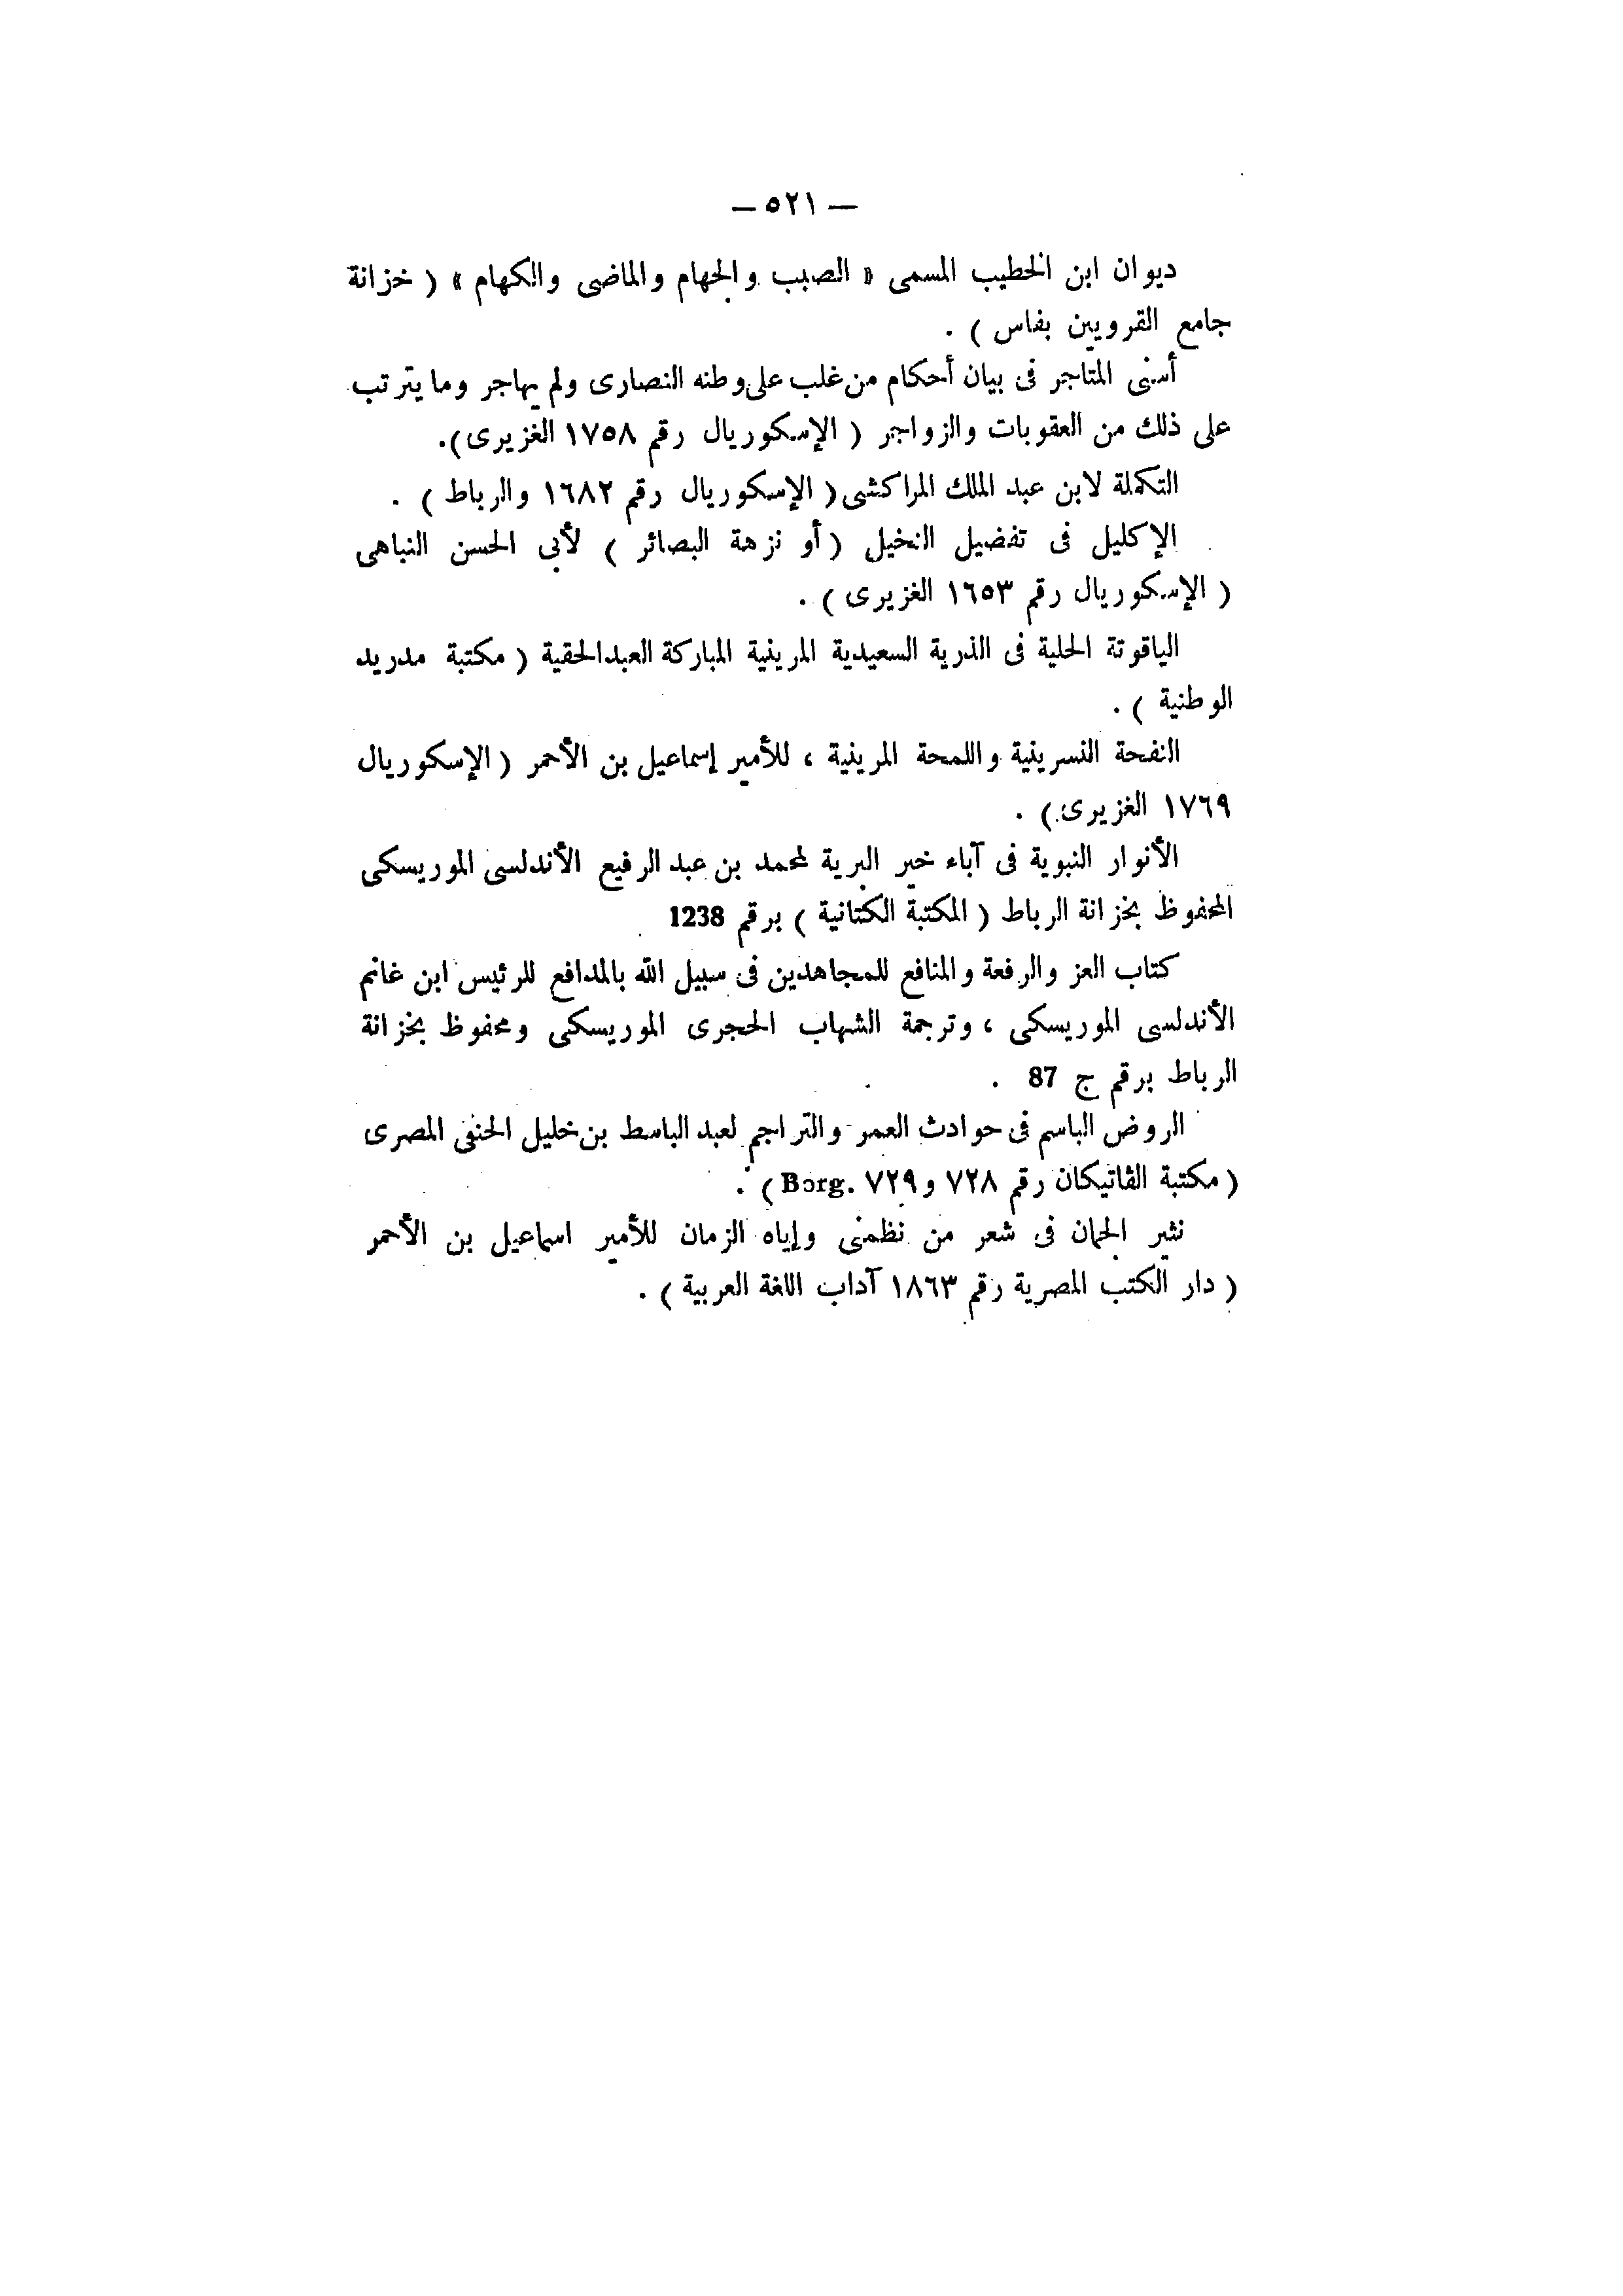 — ٥٢١ —
ديوان ابن الخطيب المسمى « الصبب والجهام والماضى والكهام » ( خزانة
جامع القرويين بفاس ) .
أسنى المتاجر فى بيان أحكام من غلب على وطنه النصارى ولم يهاجر وما يترتب
على ذلك من العقوبات والزواجر ( الإسكوريال رقم ١٧٥٨ الغزيرى).
التكملة لابن عبد الملك المراكشى ( الإسكوريال رقم ١٦٨٢ والرباط ) .
الإكليل فى تفضيل النخيل ( أو نزهة البصائر ) لأبى الحسن النباهى
( الإسكوريال رقم ١٦٥٣ الغزيرى ) .
الياقوتة الحلية فى الذرية السعيدية المرينية المباركة العبدالحقية ( مكتبة مدريد
الوطنية ) .
النفحة النسرينية واللمحة المرينية ، للأمير إسماعيل بن الأحمر ( الإسكوريال
١٧٦٩ الغزيرى ) .
الأنوار النبوية فى آباء خير البرية لمحمد بن عبد الرفيع الأندلسى الموريسكى
المحفوظ بخزانة الرباط ( المكتبة الكتانية ) برقم 1238 .
كتاب العز والرفعة والمنافع للمجاهدين فى سبيل الله بالمدافع للرئيس ابن غانم
الأندلسى الموريسكى ، وترجمة الشهاب الحجرى الموريسكى ومحفوظ بخزانة
الرباط برقم ج 87 .
الروض الباسم فى حوادث العمر والتراجم لعبد الباسط بن خليل الحنفى المصرى
( مكتبة الڤاتيكان رقم ٧٢٨ و ٧٢٩ Borg. ) .
نثير الجمان فى شعر من نظمنى وإياه الزمان للأمير اسماعيل بن الأحمر
( دار الكتب المصرية رقم ١٨٦٣ آداب اللغة العربية ) .